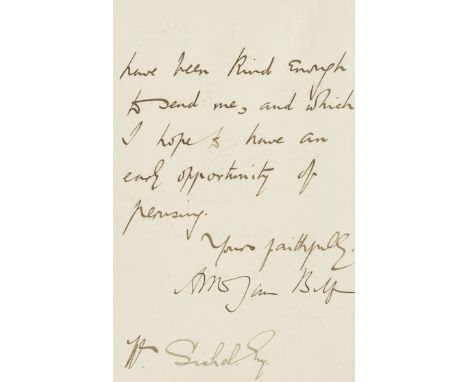 have been kind enough
to send me, and which
I hope to have an
early opportunity of
perusing.
Yours faithfully.
W. Sichel. Esq.